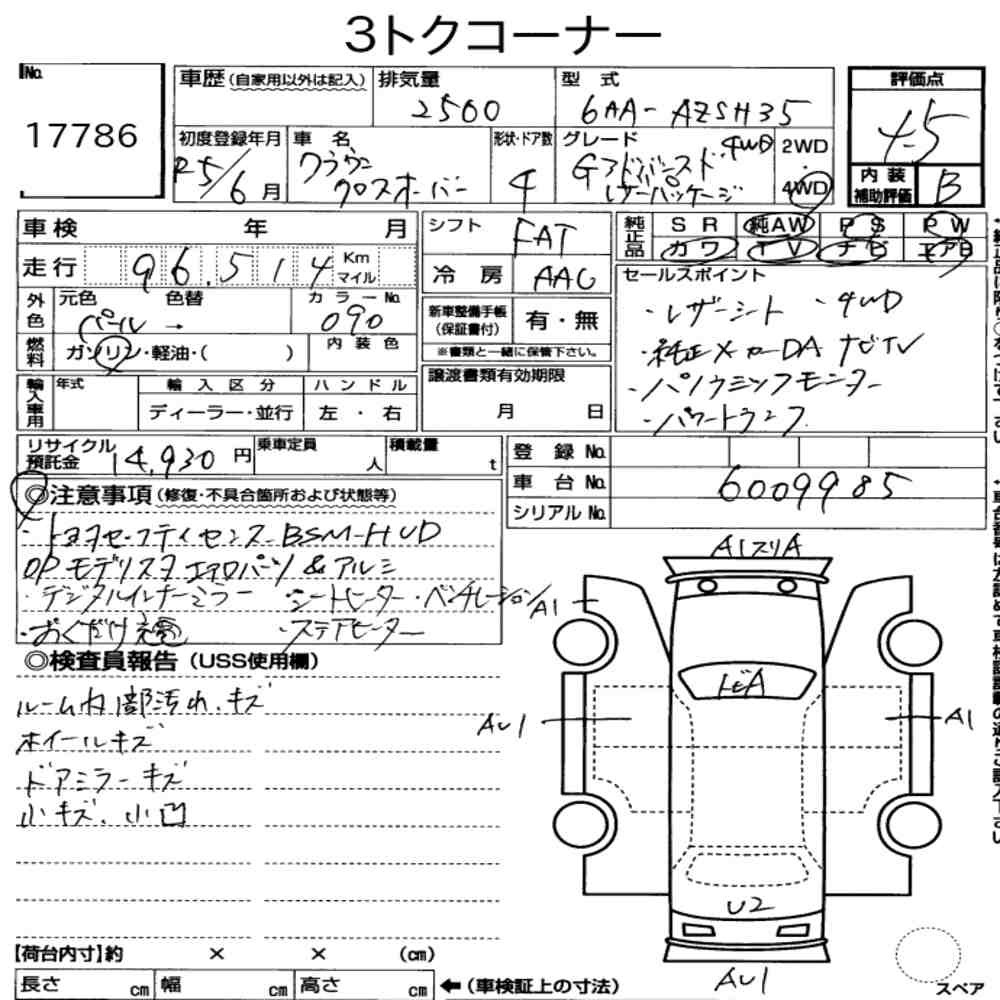 3トクコーナー
No.
17786
車歴(自家用以外は記入)
排気量
2500
型 式
6AA-AZSH35
評価点
4.5
初度登録年月
R5/6月
車 名
クラウン
クロスオーバー
形状・ドア数
4
グレード
Gアドバンスド 4WD
レザーパッケージ
2WD
・
4WD
内 装
補助評価
B
車検 年 月
走行 96.514 Km
マイル
シフト
FAT
冷 房
AAC
純正品
SR 純AW PS PW
カワ TV ナビ エアB
外色
元色 色替
パール →
カラーNo.
090
新車整備手帳
(保証書付)
有・無
※書類と一緒に保管下さい。
セールスポイント
・レザーシート ・4WD
・純正メーカーDA ナビTV
・パノラミックモニター
・パワートランク
燃料
ガソリン・軽油・( )
内 装 色
輸入車用
年式
輸 入 区 分
ディーラー・並行
ハ ン ド ル
左 ・ 右
譲渡書類有効期限
月 日
リサイクル
預託金
14,930 円
乗車定員
人
積載量
t
登 録 No.
車 台 No.
6009985
シリアル No.
◎注意事項(修復・不具合箇所および状態等)
・トヨタセーフティセンス BSM・HUD
OP モデリスタ エアロパーツ&アルミ
・デジタルインナーミラー ・シートヒーター・ベンチレーション
・おくだけ充電 ・ステアヒーター
◎検査員報告(USS使用欄)
ルーム内部汚れ、キズ
ホイールキズ
ドアミラーキズ
小キズ、小凹
A1スリA
A1
トビA
AU1
A1
U2
AU1
スペア
【荷台内寸】約 × × (cm)
長さ cm
幅 cm
高さ cm
←(車検証上の寸法)